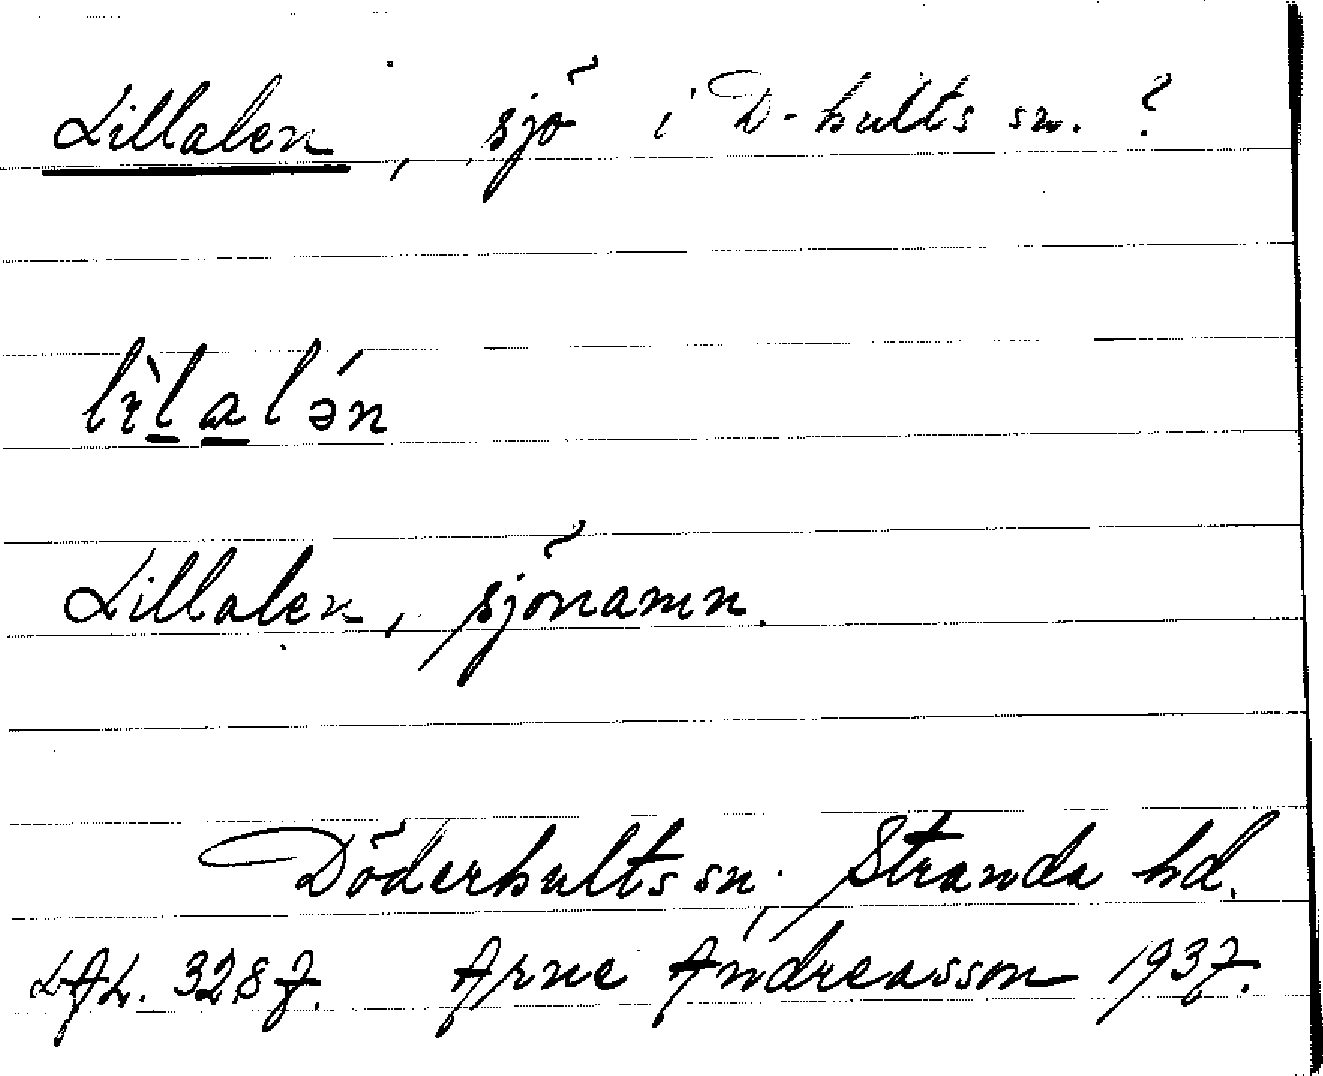 Lillalen, sjö i D-hults sn. ?
lìlalə́n
Lillalen, sjönamn.
Döderhults sn, Stranda hd.
LAL. 3287. Arne Andreasson 1937.